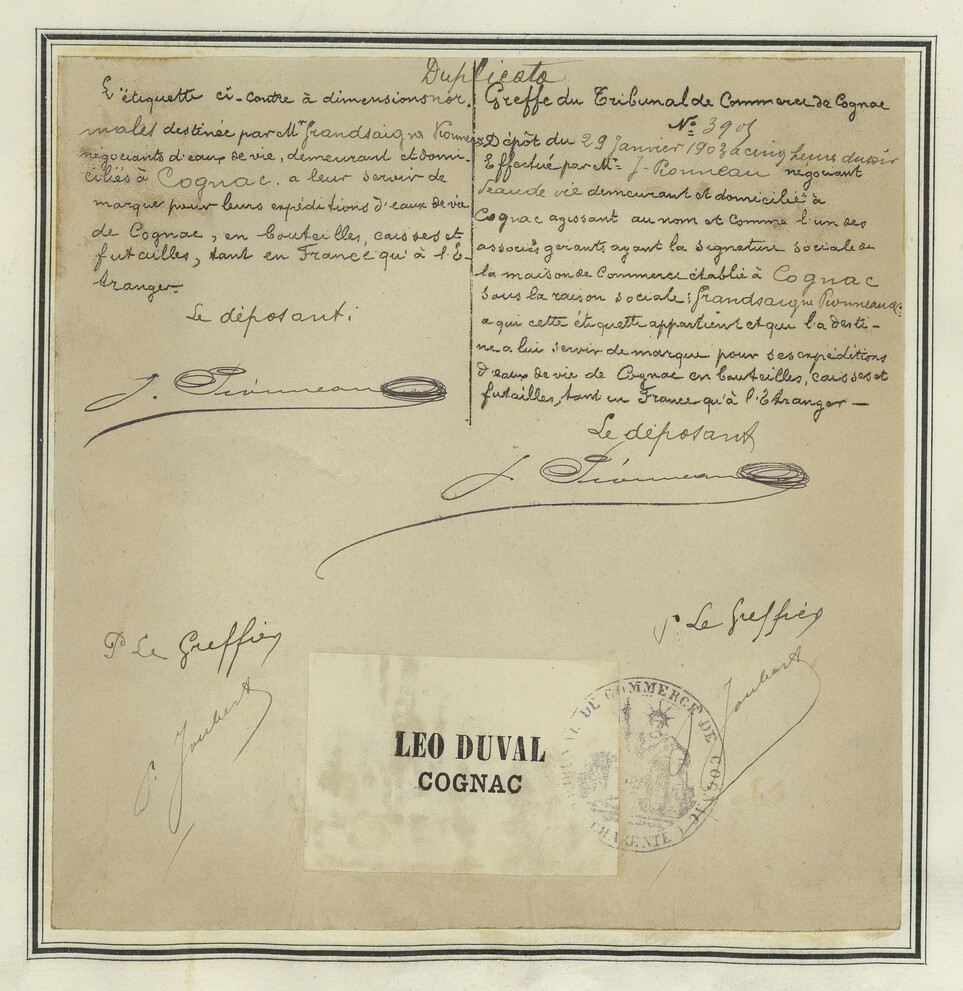 Duplicata
L'étiquette ci-contre à dimensions nor.
males destinée par Mrs Grandsaigne Pionneau
négociants d'eaux de vie, demeurant et domi-
ciliés à Cognac. a leur servir de
marque pour leurs expéditions d'eaux de vie
de Cognac, en bouteilles, caisses et
futailles, tant en France qu'à l'E-
tranger.
Le déposant:
J. Pionneau
Greffe du Tribunal de Commerce de Cognac
No 390
Dépôt du 29 Janvier 1903 a cinq heures du soir
Effectué par Mr J. Pionneau négociant
d'eau de vie demeurant et domicilié à
Cognac agissant au nom et comme l'un des
associés gérants ayant la signature sociale de
la maison de Commerce établie à Cognac
sous la raison sociale: Grandsaigne Pionneau &
a qui cette étiquette appartient et qui l'a desti-
née a lui servir de marque pour ses expéditions
d'eaux de vie de Cognac en bouteilles, caisses et
futailles, tant en France qu'à l'Etranger —
Le déposant
J. Pionneau
Pr Le Greffier
P. Joubert
Pr Le Greffier
Joubert
LEO DUVAL
COGNAC
TRIBUNAL DE COMMERCE DE COGNAC
(CHARENTE)